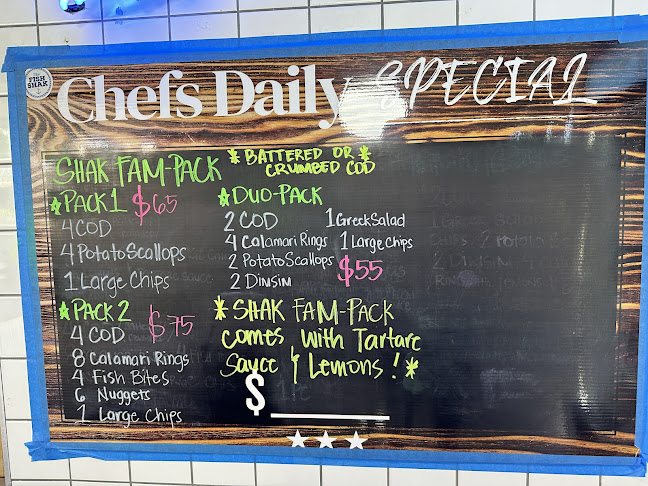 FISH SHAK
Chefs Daily SPECIAL
SHAK FAM-PACK
* BATTERED OR *
CRUMBED COD
PACK 1 $65
4 COD
4 Potato Scallops
1 Large Chips
PACK 2 $75
4 COD
8 Calamari Rings
4 Fish Bites
6 Nuggets
1 Large Chips
DUO-PACK
2 COD
4 Calamari Rings
2 Potato Scallops
2 DIMSIM
1 Greek Salad
1 Large Chips
$55
* SHAK FAM-PACK
comes with Tartare
Sauce & Lemons! *
$